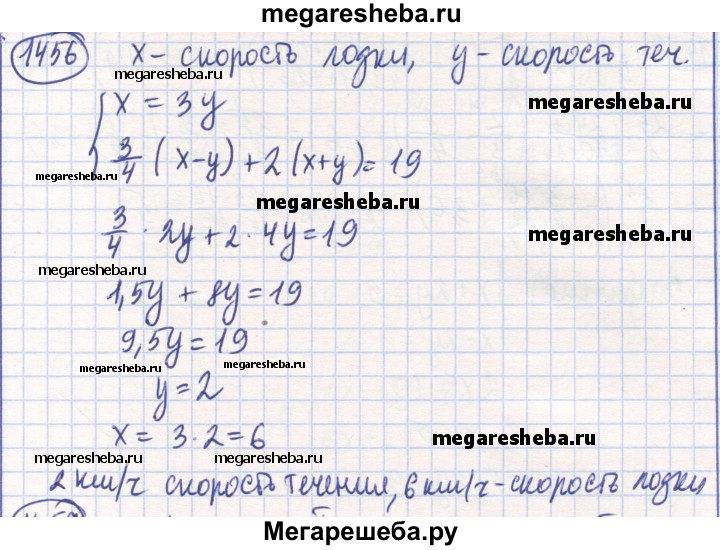 megaresheba.ru
1456 x - скорость лодки, y - скорость теч.
megaresheba.ru
x = 3y
megaresheba.ru
3/4 (x-y) + 2(x+y) = 19
megaresheba.ru
megaresheba.ru
3/4 · 2y + 2 · 4y = 19
megaresheba.ru
megaresheba.ru
1,5y + 8y = 19
megaresheba.ru
9,5y = 19
megaresheba.ru
megaresheba.ru
y = 2
x = 3·2 = 6
megaresheba.ru
megaresheba.ru
2 км/ч скорость течения, 6 км/ч - скорость лодки
Мегарешеба.ру